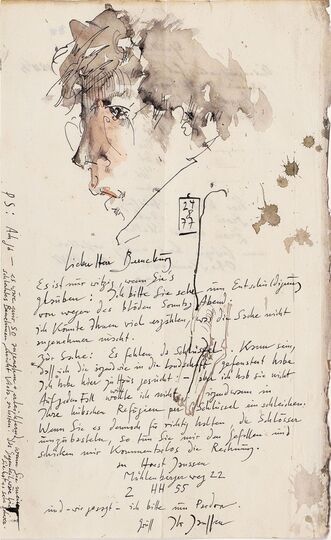 24
9
77
Lieber Herr
Es ist nur witzig, wenn Sie's
glauben: ich bitte Sie sehr um Entschuldigung
von wegen des blöden Sonntag Abend.
Ich könnte Ihnen viel erzählen, was die Sache nicht
angenehmer macht.
Zur Sache: Es fehlen da Schlüssel. Kann sein,
daß ich die irgendwie in die Landschaft gefenstert habe.
Ich habe hier zuhaus gesucht – aber ich hab sie nicht
Auf jeden Fall wollte ich nicht irgendwann in
Ihre hübschen Refugien per Schlüssel einschleichen.
Wenn Sie es dennoch für richtig halten die Schlösser
umzubasteln, so tun Sie mir den Gefallen und
schicken mir kommentarlos die Rechnung.
an Horst Janssen
Mühlenbergerweg 22
2 HH 55
und – wie gesagt – ich bitte um Pardon.
Ihr Janssen
PS: Ach ja –